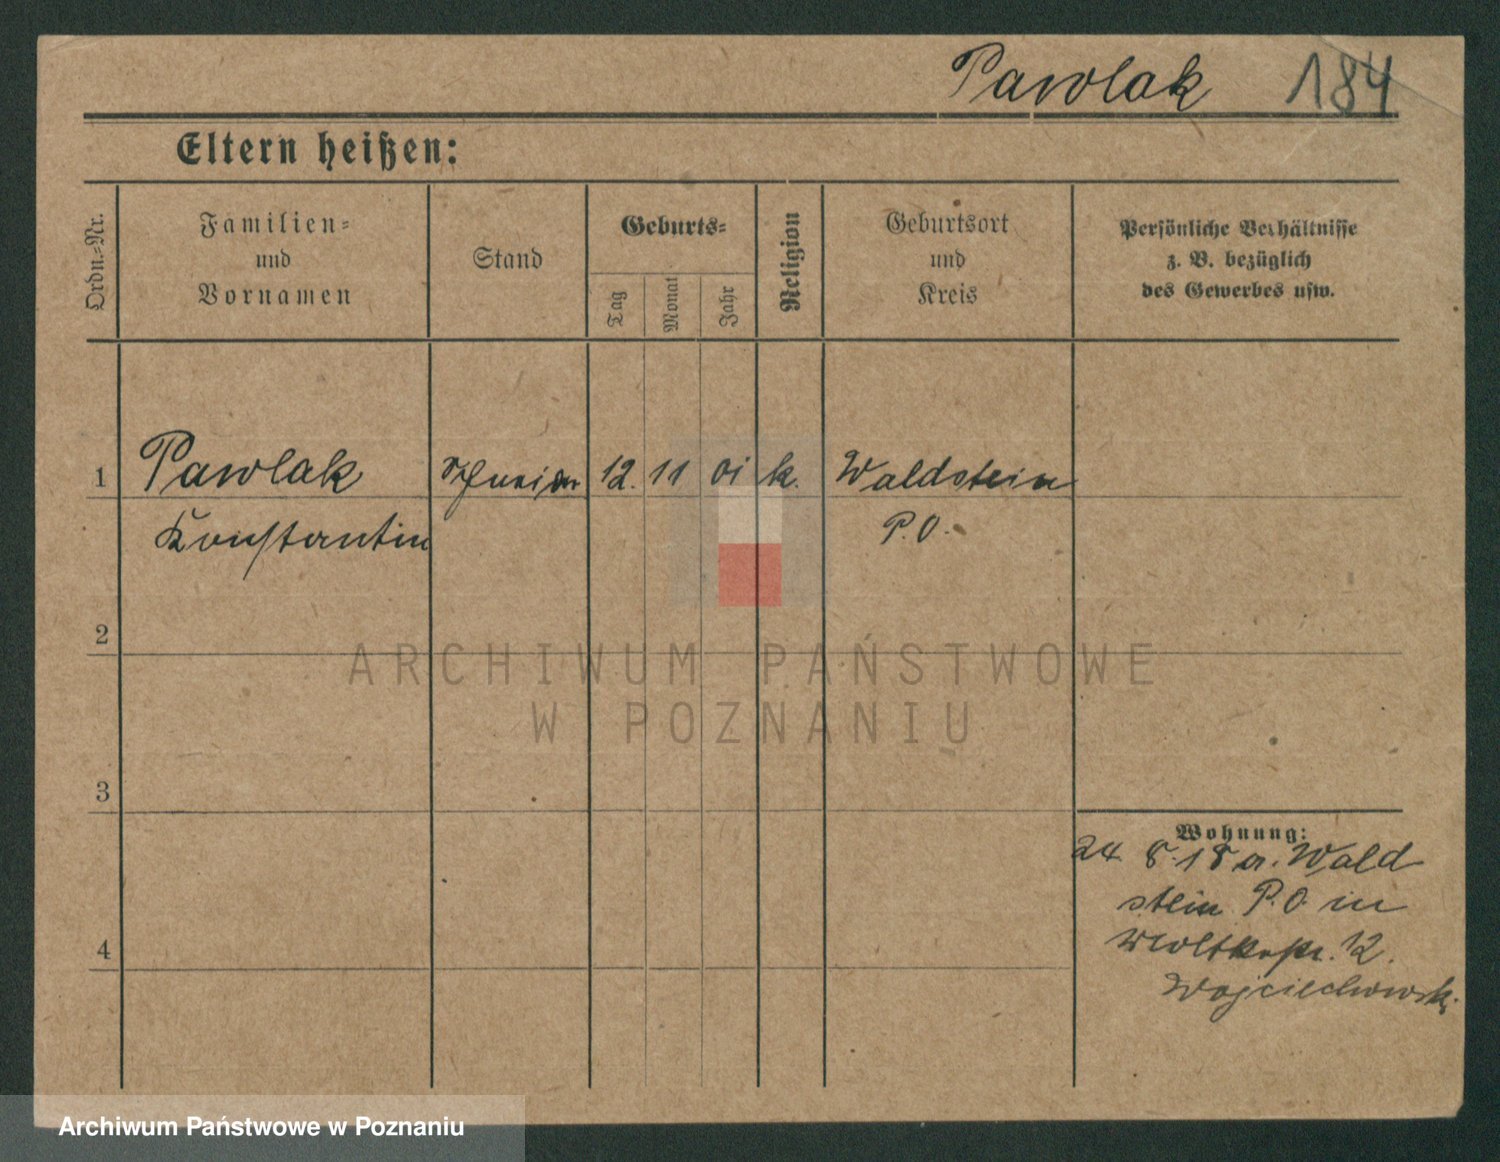 Pawlak 184
Eltern heißen:
Ordn.-Nr.
Familien-
und
Vornamen
Stand
Geburts-
Tag
Monat
Jahr
Religion
Geburtsort
und
Kreis
Persönliche Verhältnisse
z. B. bezüglich
des Gewerbes usw.
1 Pawlak Schneider 12. 11 01 k. Waldstein
Konstantin P.O.
2
3
4
Wohnung:
24. 8. 18 a. Wald
stein P.O in
Moltkestr. 12.
Wojciechowski
ARCHIWUM PAŃSTWOWE
W POZNANIU
Archiwum Państwowe w Poznaniu